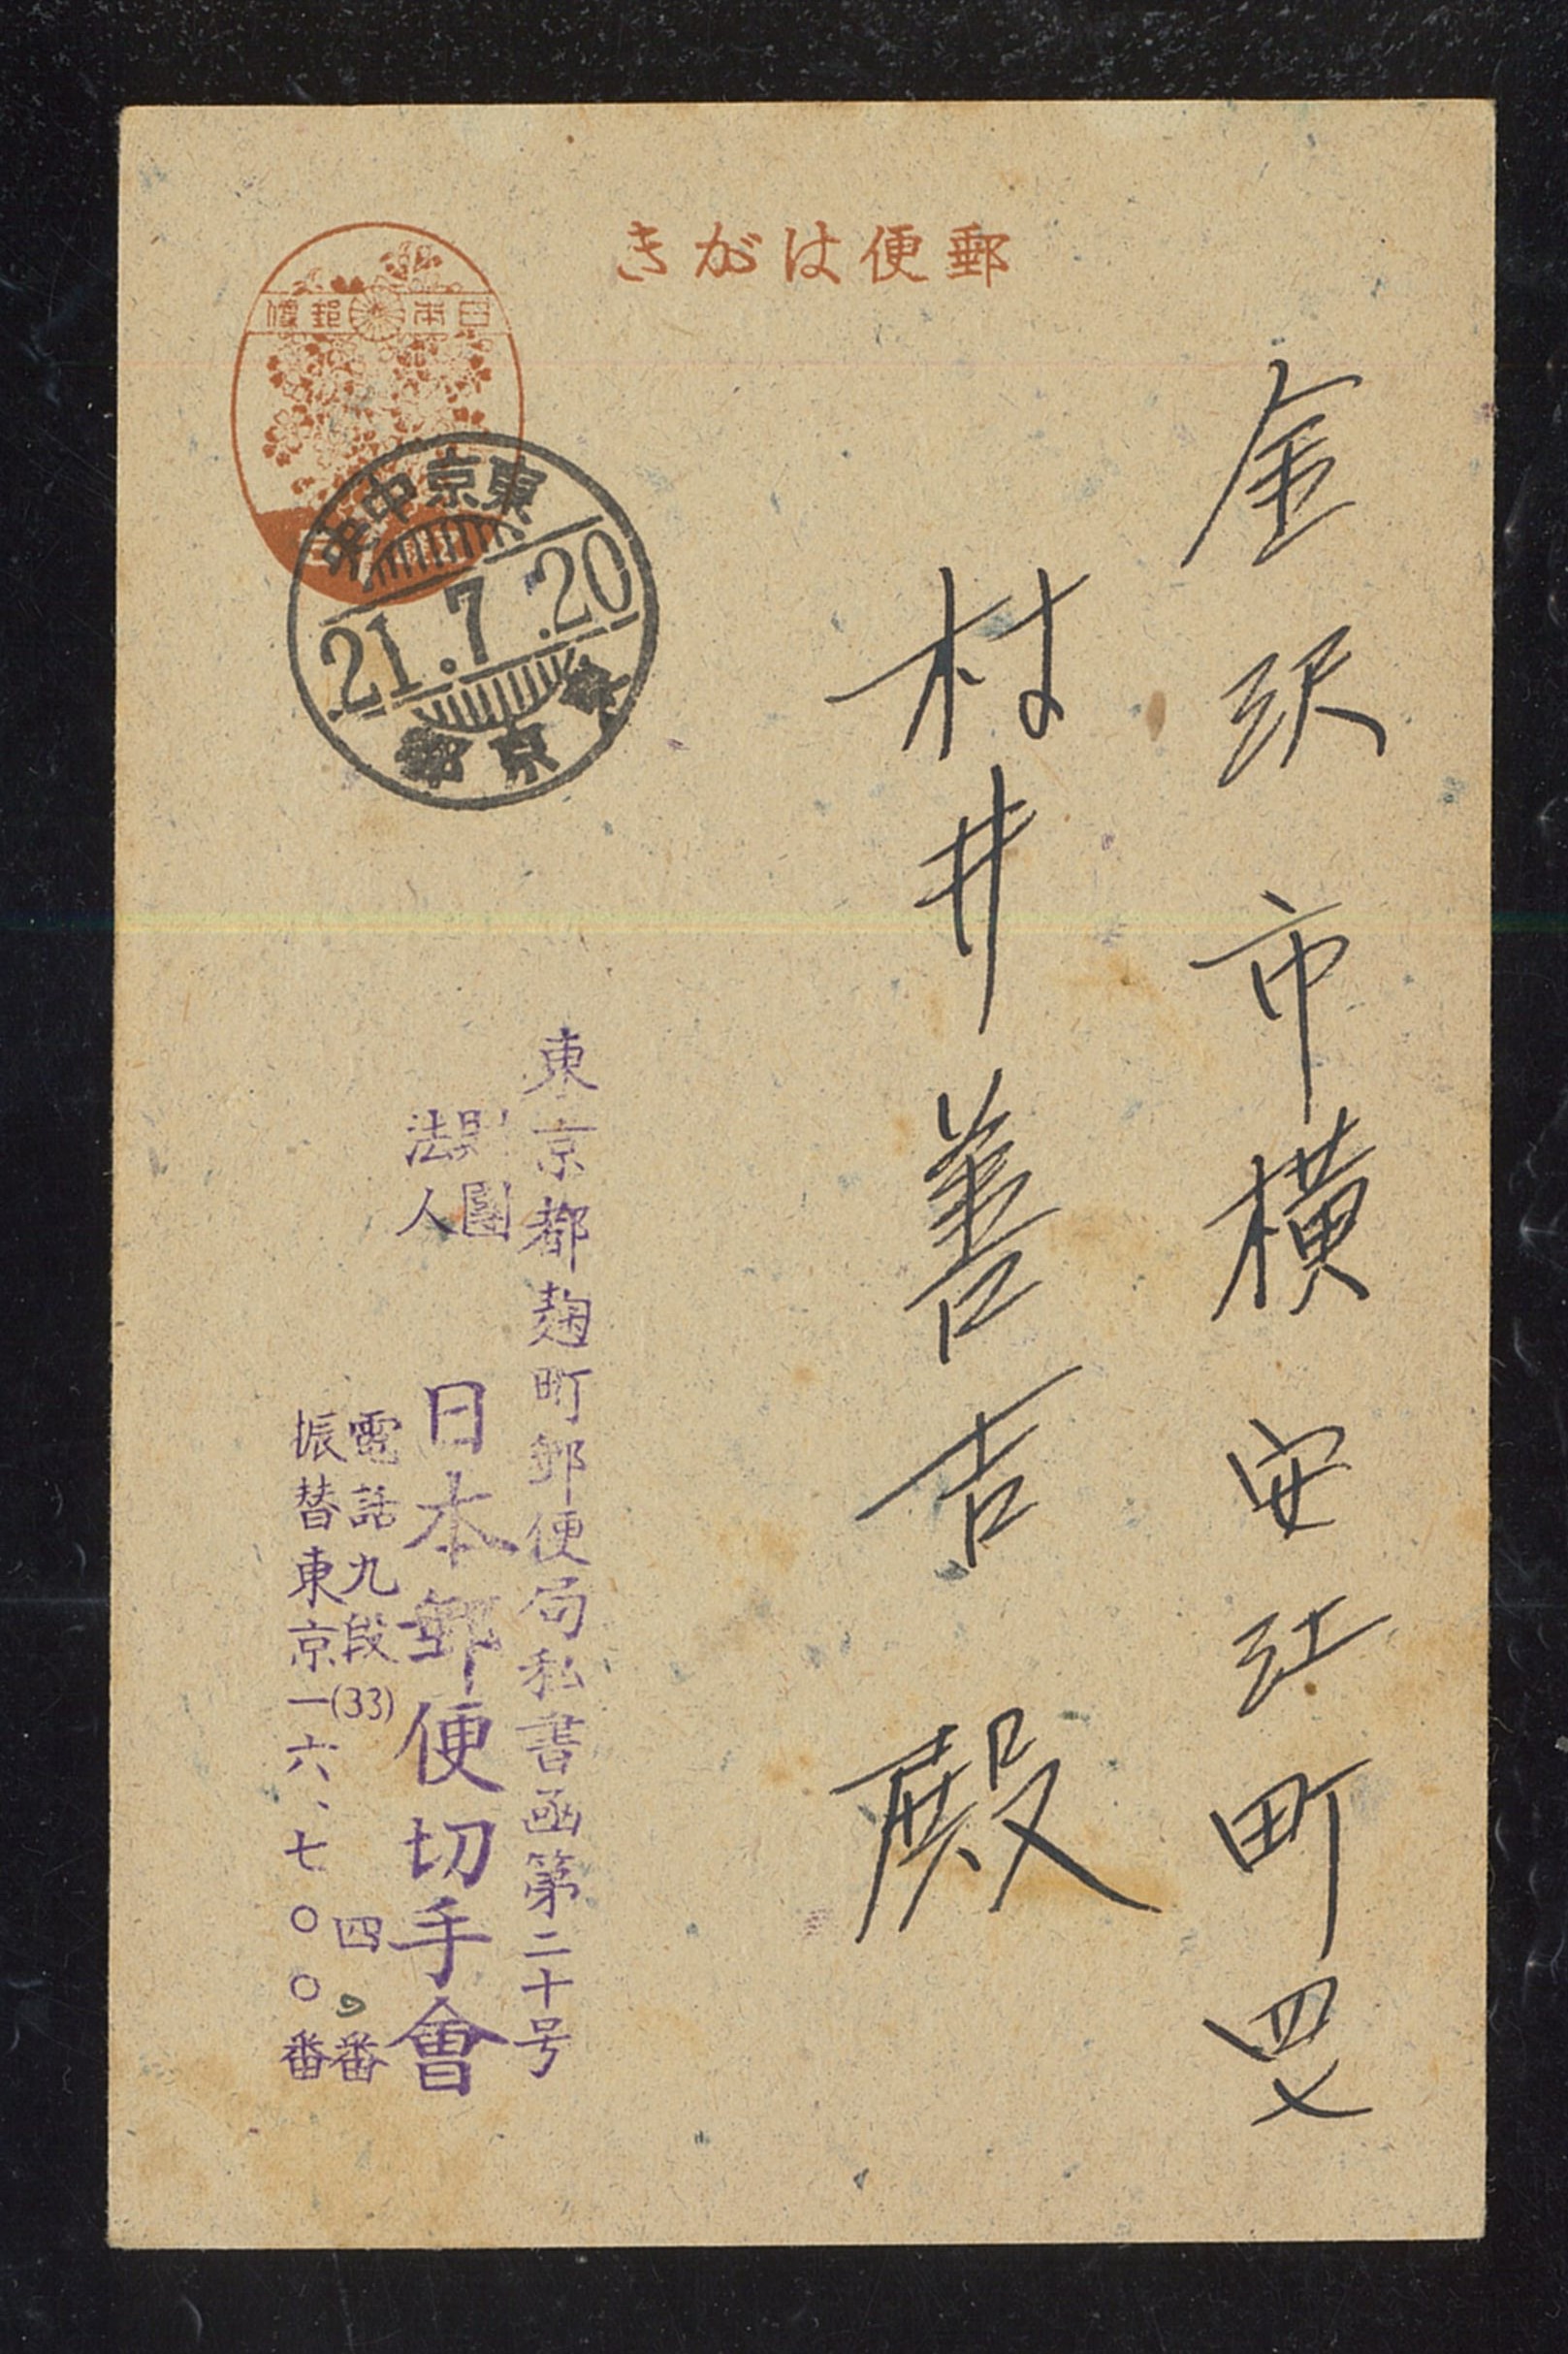 郵便はがき
日本郵便
東京中央
21.7.20
東京都
金沢市横安江町四七
村井善吉 殿
東京都麹町郵便局私書函第二十号
財團
法人
日本郵便切手會
電話九段(33) 四〇番
振替東京一六、七〇〇番